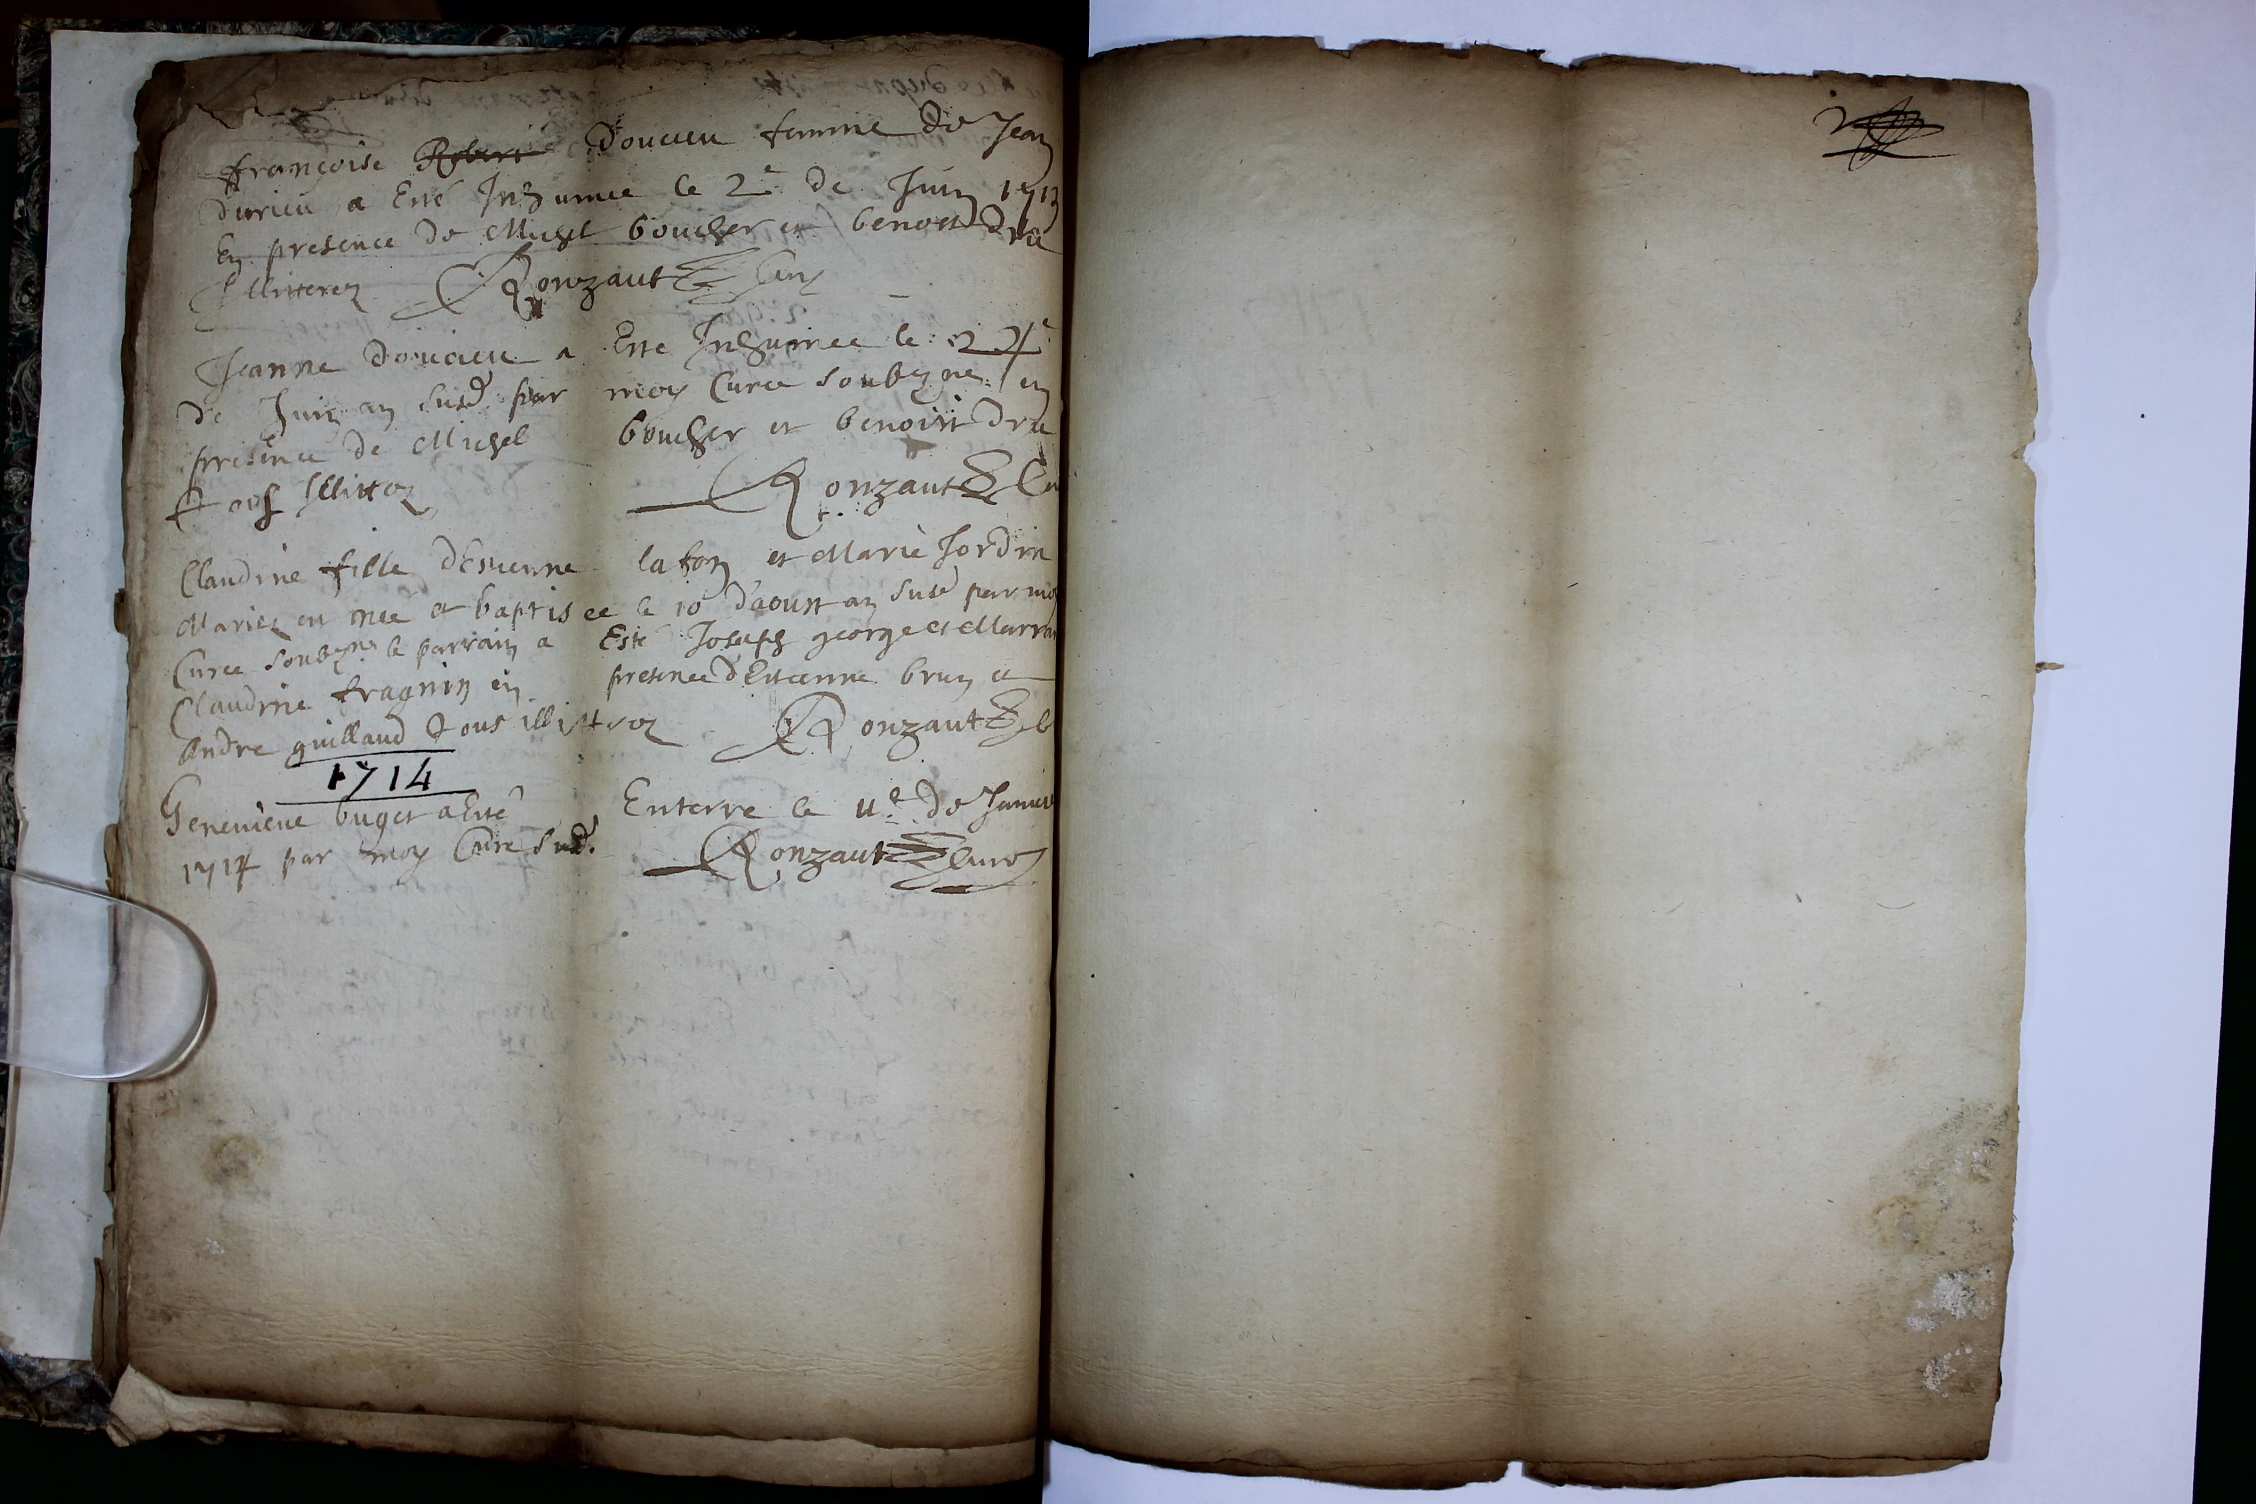 françoise Robert Doucieu femme de Jean
durieu a Esté Inhumee le 2e de Juin 1713
En presence de Michel boucher et benoist dru
Illitterez Ronzaut Cure
Jeanne Doucieu a Esté Inhumee le 24e
de Juin an susd par moy Cure soubzne en
presence de Michel boucher et benoist dru
tous Illitterz Ronzaut Cu
Claudine fille d'Estienne lafon et Marie Jordin
Mariez en née et baptisee le 10 d'aoust an susd par moy
Cure soubzne le parrain a Esté Joseph george et Marrai
Claudine fragnin en presence d'Estienne brun et
Andre guillaud tous illitterz Ronzaut C
1714
Genevieve buget a Esté Enterre le 11e de Janvie
1714 par moy Cure susd. Ronzaut Cure